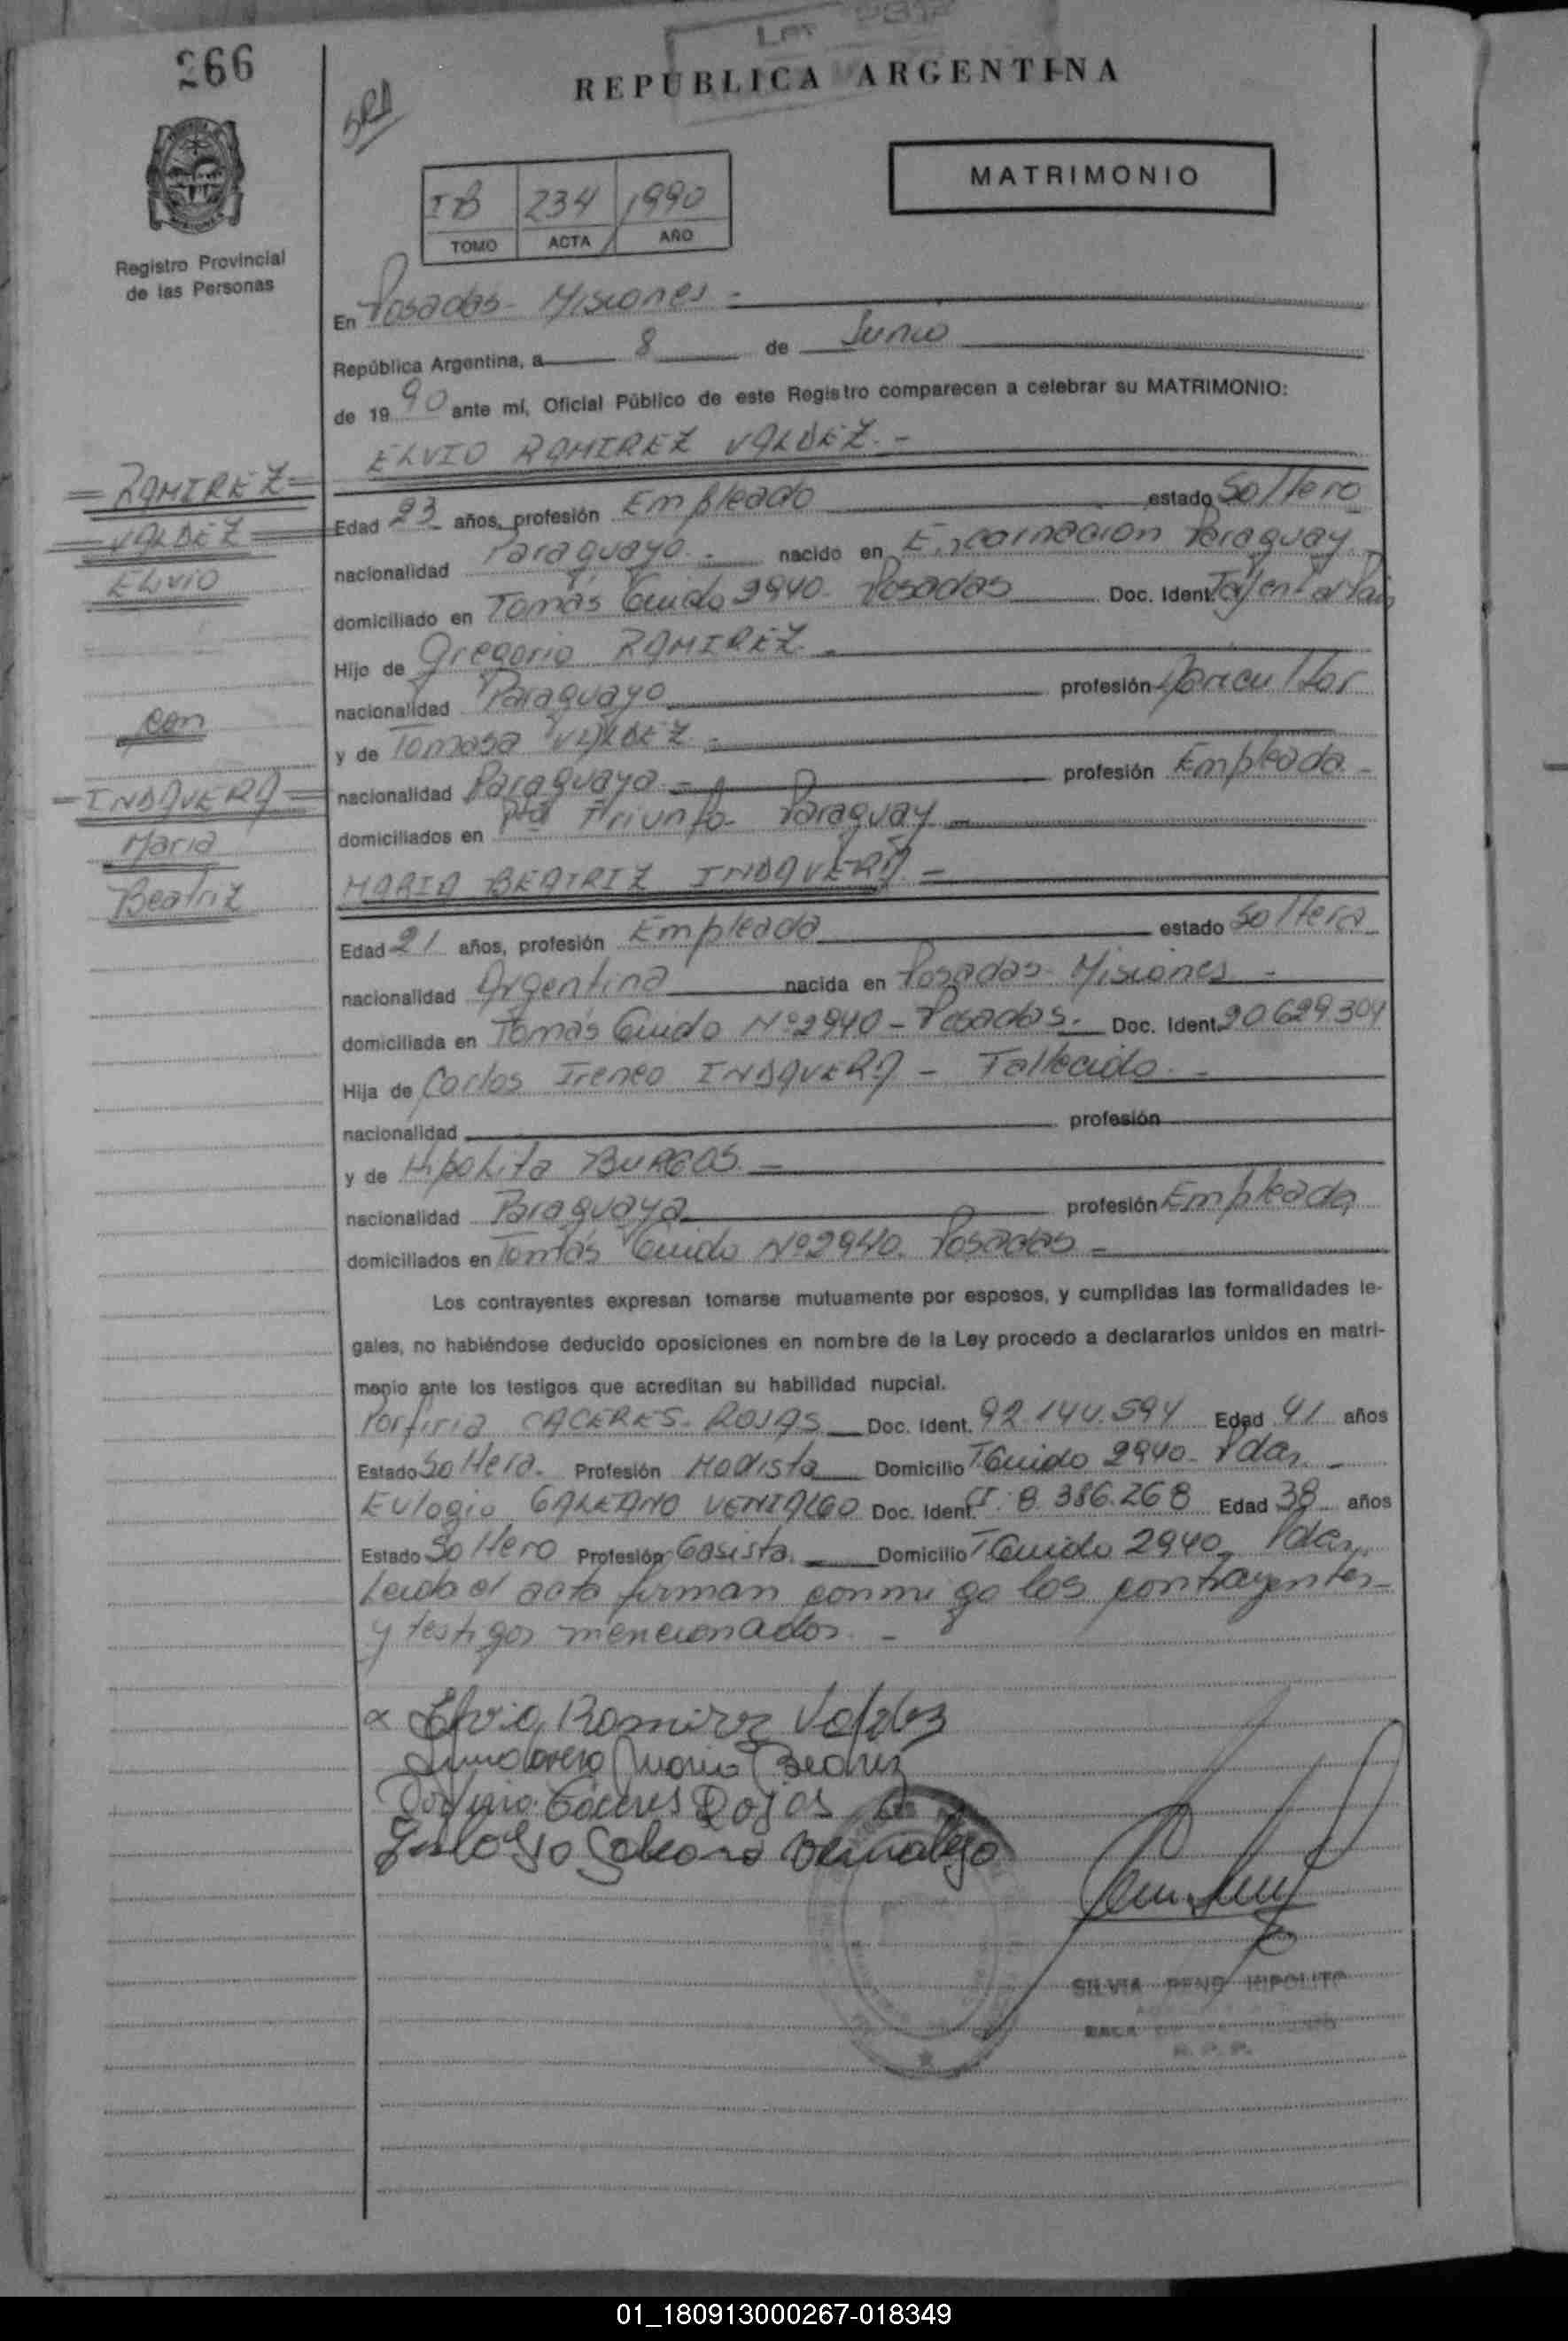 266
REPUBLICA ARGENTINA
Registro Provincial
de las Personas
IB 234 1990
TOMO ACTA AÑO
MATRIMONIO
En Posadas - Misiones -
República Argentina, a 8 de Junio
de 1990 ante mí, Oficial Público de este Registro comparecen a celebrar su MATRIMONIO:
ELVIO RAMIREZ VALDEZ. -
RAMIREZ
VALDEZ
ELVIO
con
INDAVERA
Maria
Beatriz
Edad 23 años, profesión Empleado estado Soltero
nacionalidad Paraguaya. nacido en Encarnacion Paraguay
domiciliado en Tomás Guido 2940. Posadas Doc. Ident.
Hijo de Gregorio RAMIREZ -
nacionalidad Paraguayo profesión
y de Tomasa VALDEZ -
nacionalidad Paraguaya - profesión Empleada -
domiciliados en Pto Triunfo - Paraguay -
MARIA BEATRIZ INDAVERA -
Edad 21 años, profesión Empleada estado Soltera
nacionalidad Argentina nacida en Posadas - Misiones -
domiciliada en Tomás Guido Nº 2940 - Posadas. Doc. Ident. 20.629.304
Hija de Carlos Ireneo INDAVERA - Fallecido. -
nacionalidad profesión
y de Hipolita BURGOS. -
nacionalidad Paraguaya profesión Empleada
domiciliados en Tomás Guido Nº 2940. Posadas -
Los contrayentes expresan tomarse mutuamente por esposos, y cumplidas las formalidades le-
gales, no habiéndose deducido oposiciones en nombre de la Ley procedo a declararlos unidos en matri-
monio ante los testigos que acreditan su habilidad nupcial.
Porfiria CACERES - ROJAS Doc. Ident. 92.140.594 Edad 41 años
Estado Soltera. Profesión Modista Domicilio T Guido 2940 - Pdas. -
Eulogio GALEANO VENIALGO Doc. Ident. CI. 8.386.268 Edad 38 años
Estado Soltero Profesión Gasista. Domicilio T Guido 2940 - Pdas.
Leida el acta firman conmigo los contrayentes
y testigos mencionados. -
Elvio Ramirez Valdez
Indavera Maria Beatriz
Porfiria Caceres Rojas
Eulogio Galeano Venialgo
SILVIA HIPOLITO
R. P. P.
01_180913000267-018349